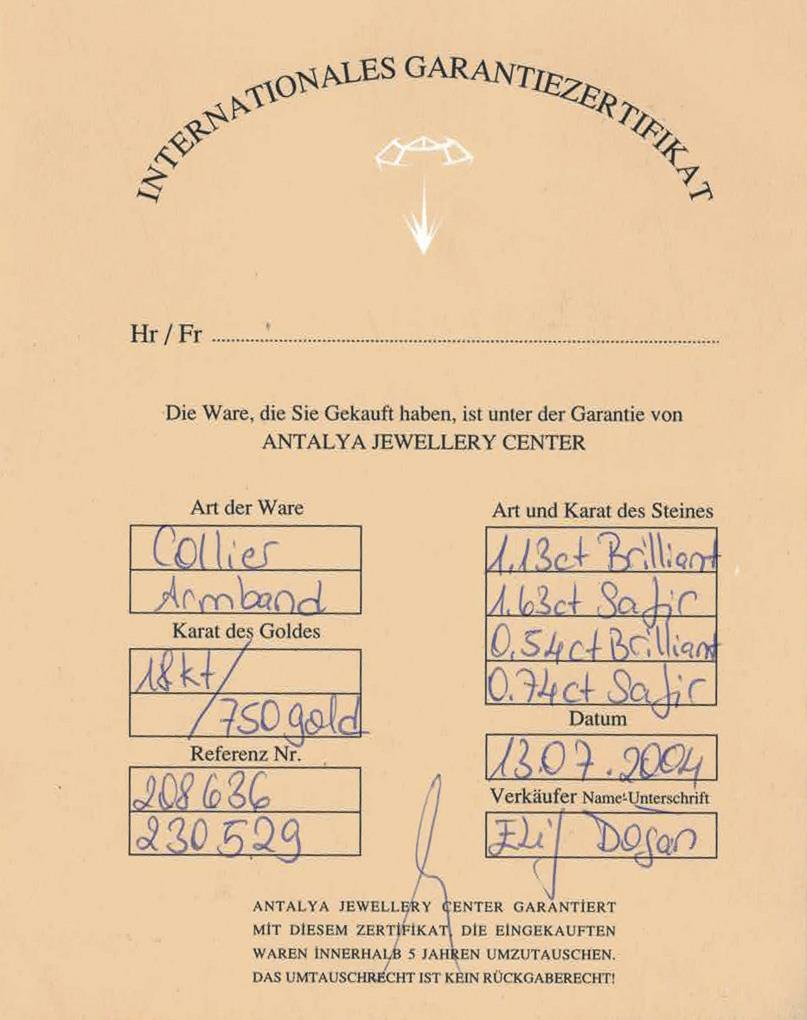 INTERNATIONALES GARANTIEZERTIFIKAT
Hr / Fr ........................................
Die Ware, die Sie Gekauft haben, ist unter der Garantie von
ANTALYA JEWELLERY CENTER
Art der Ware
Collier
Armband
Karat des Goldes
18kt/
/750gold
Referenz Nr.
208636
230529
Art und Karat des Steines
1.13ct Brilliant
1.63ct Safir
0.54ct Brilliant
0.74ct Safir
Datum
13.07.2004
Verkäufer Name-Unterschrift
Elif Dogan
ANTALYA JEWELLERY CENTER GARANTİERT
MİT DİESEM ZERTİFİKAT, DİE EİNGEKAUFTEN
WAREN İNNERHALB 5 JAHREN UMZUTAUSCHEN.
DAS UMTAUSCHRECHT IST KEIN RÜCKGABERECHT!